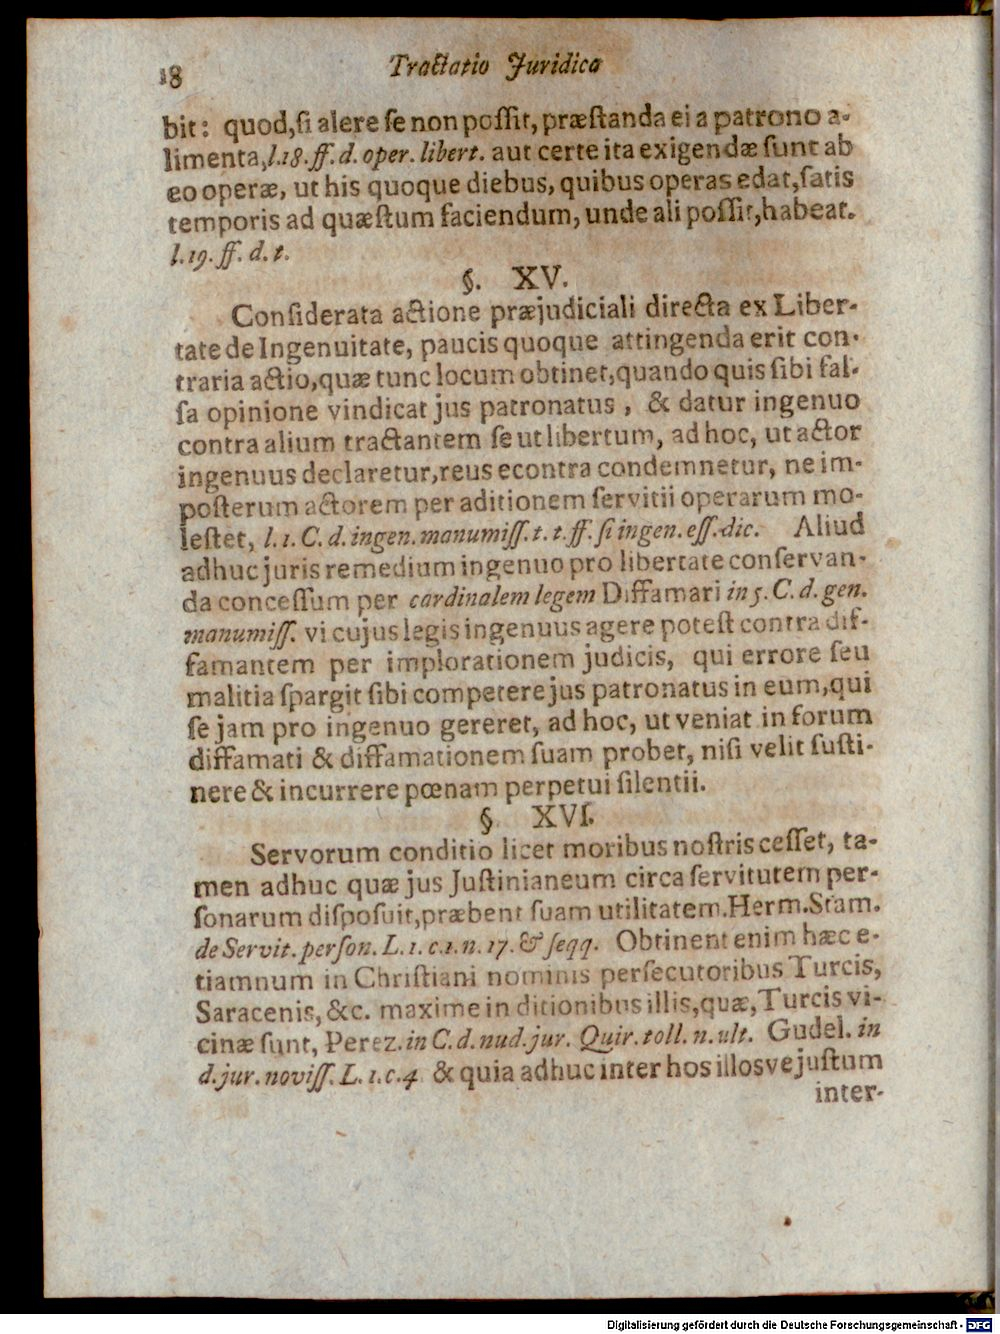 18 Tractatio Juridica
bit: quod,ſi alere ſe non poſſit, præſtanda ei a patrono a-
limenta,l.18.ff.d. oper. libert. aut certe ita exigendæ ſunt ab
eo operæ, ut his quoque diebus, quibus operas edat,ſatis
temporis ad quæſtum faciendum, unde ali poſſit,habeat.
l.19.ff. d. t.
§. XV.
Conſiderata actione præjudiciali directa ex Liber-
tate de Ingenuitate, paucis quoque attingenda erit con-
traria actio,quæ tunc locum obtinet,quando quis ſibi fal-
ſa opinione vindicat jus patronatus, & datur ingenuo
contra alium tractantem ſe ut libertum, ad hoc, ut actor
ingenuus declaretur,reus econtra condemnetur, ne im-
poſterum actorem per aditionem ſervitii operarum mo-
leſtet, l. 1. C. d. ingen. manumiſſ. t. t. ff. ſi ingen. eſſ. dic. Aliud
adhuc juris remedium ingenuo pro libertate conſervan-
da conceſſum per cardinalem legem Diffamari in 5. C. d. gen.
manumiſſ. vi cujus legis ingenuus agere poteſt contra dif-
famantem per implorationem judicis, qui errore ſeu
malitia ſpargit ſibi competere jus patronatus in eum,qui
ſe jam pro ingenuo gereret, ad hoc, ut veniat in forum
diffamati & diffamationem ſuam probet, niſi velit ſuſti-
nere & incurrere pœnam perpetui ſilentii.
§. XVI.
Servorum conditio licet moribus noſtris ceſſet, ta-
men adhuc quæ jus Juſtinianeum circa ſervitutem per-
ſonarum diſpoſuit,præbent ſuam utilitatem.Herm.Stam.
de Servit. perſon. L. 1. c. 1. n. 17. & ſeqq. Obtinent enim hæc e-
tiamnum in Chriſtiani nominis perſecutoribus Turcis,
Saracenis, &c. maxime in ditionibus illis,quæ,Turcis vi-
cinæ ſunt, Perez. in C. d. nud. jur. Quir. toll. n. ult. Gudel. in
d. jur. noviſſ. L. 1. c. 4 & quia adhuc inter hos illosve juſtum
inter-
Digitalisierung gefördert durch die Deutsche Forschungsgemeinschaft - DFG